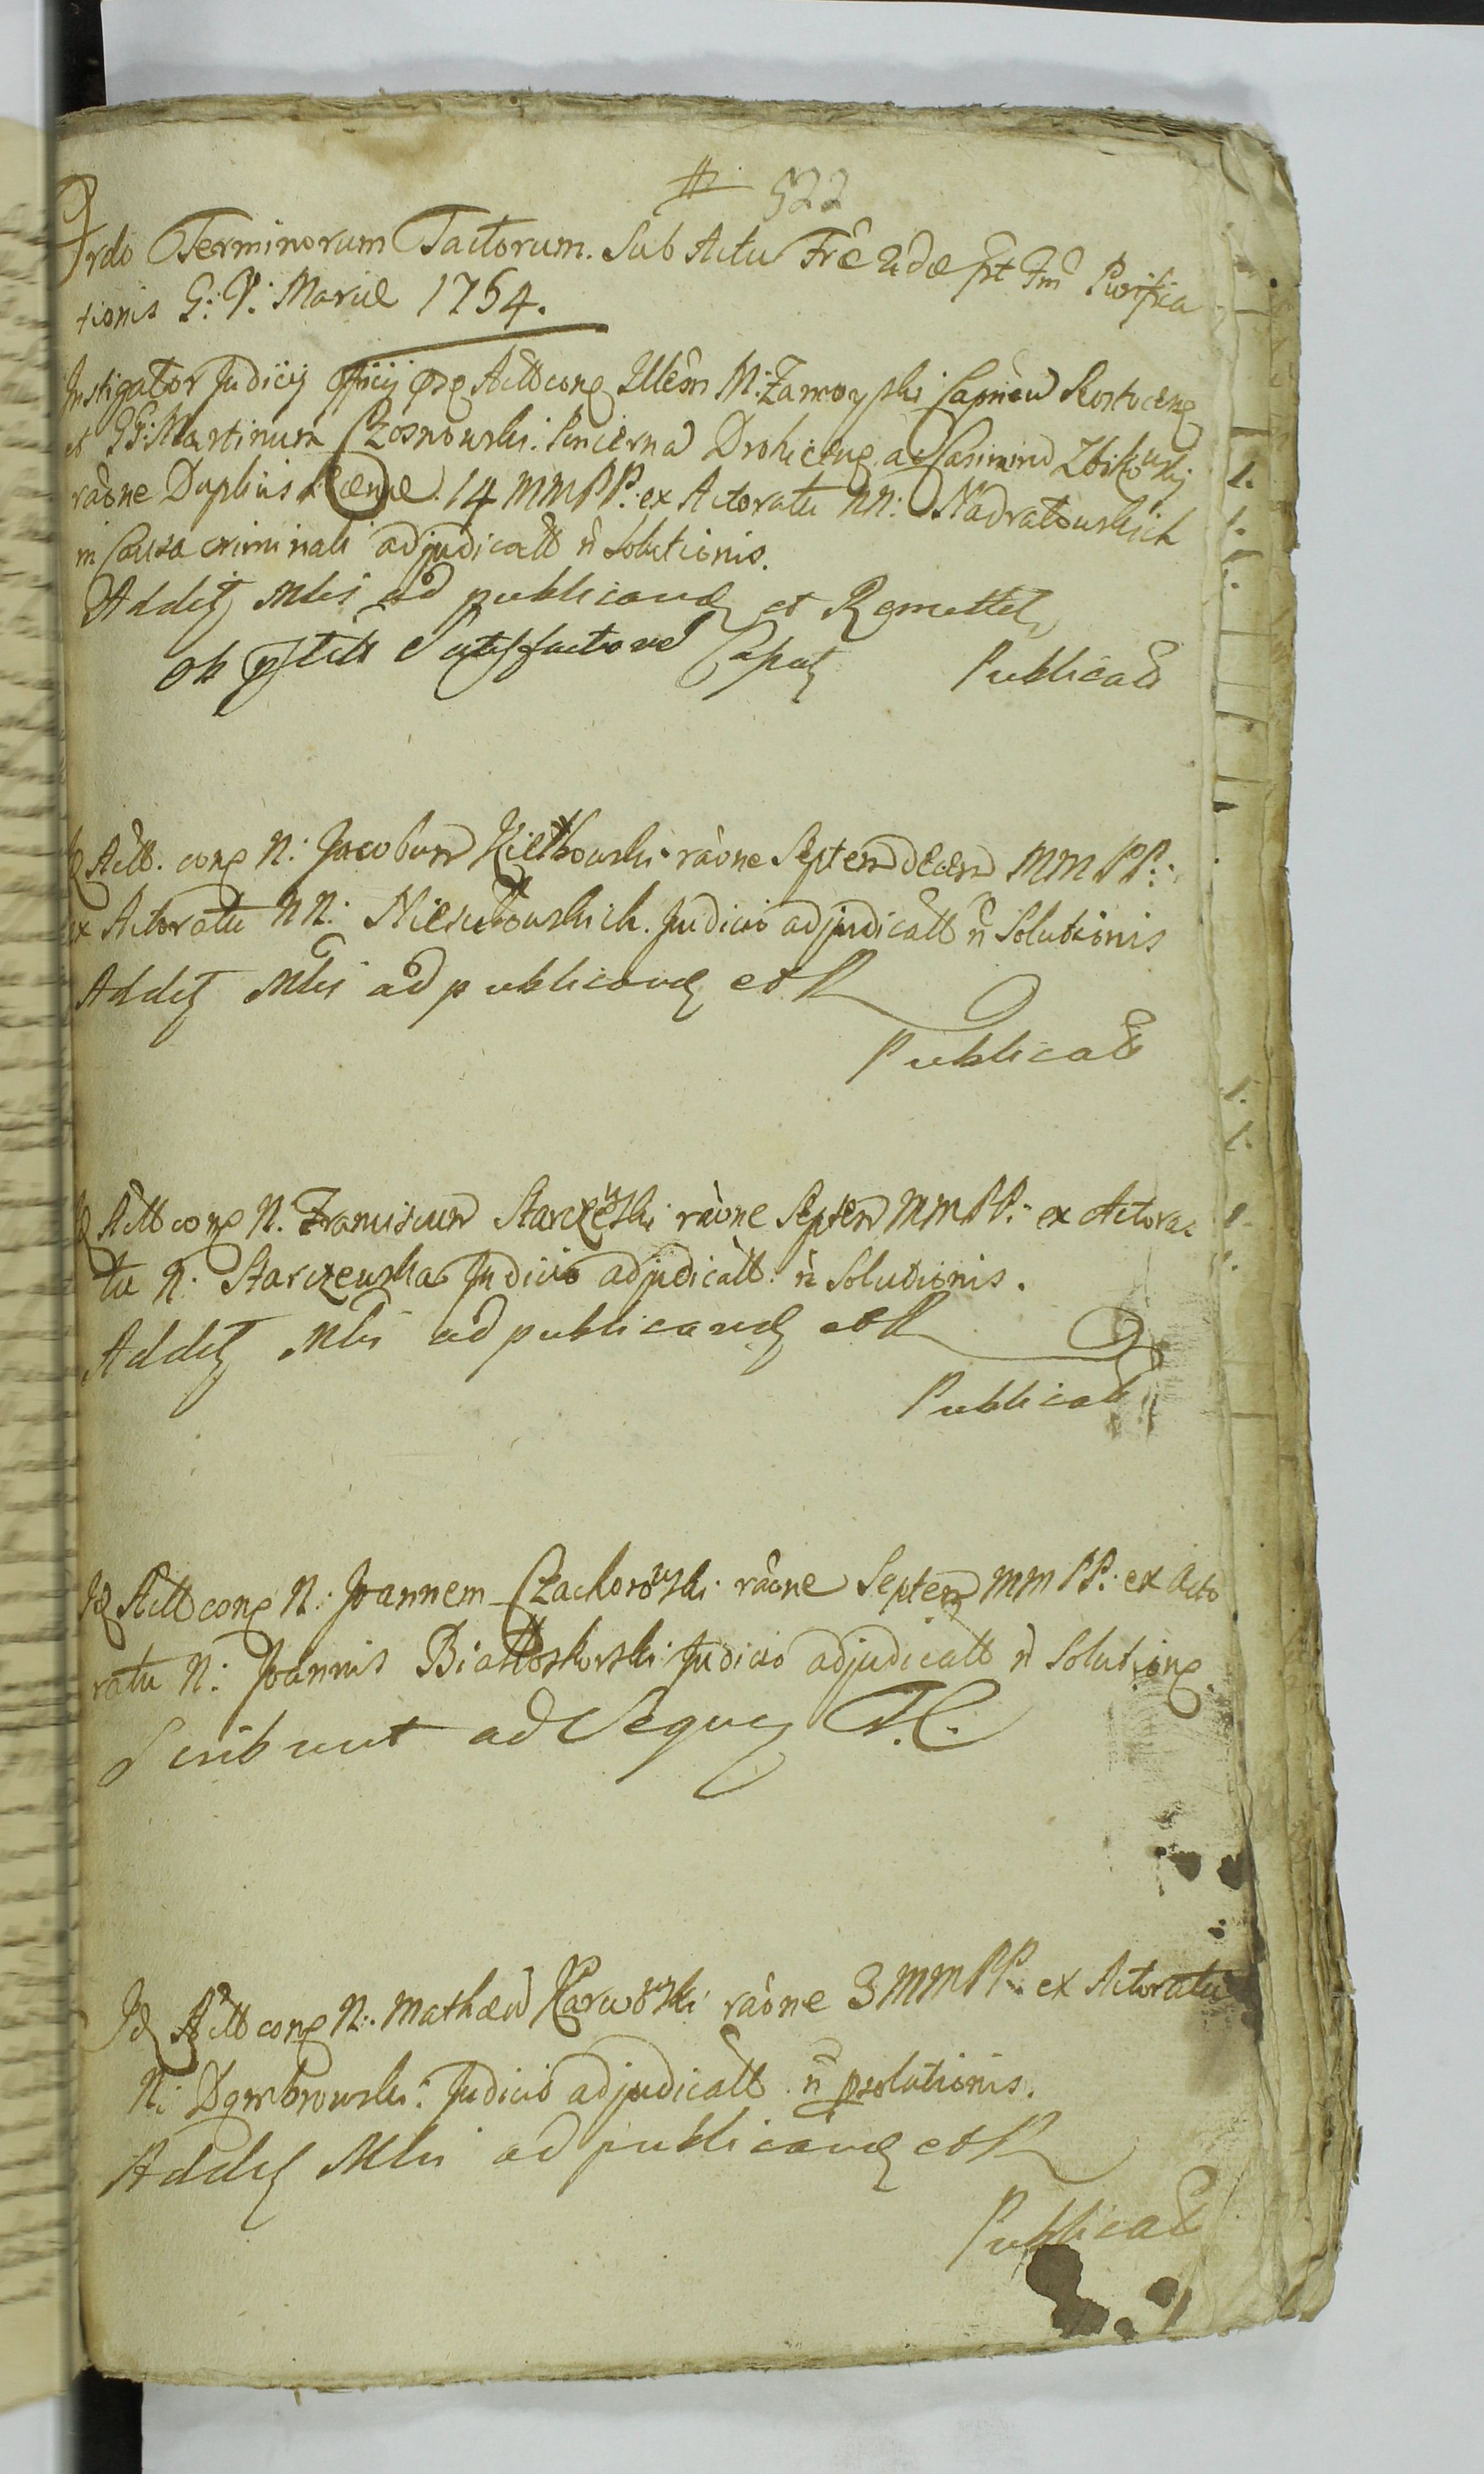 # 522
Ordo Terminorum Tactorum. Sub Actu Fræ 2dæ pt Fm Purifica
tionis G: V: Mariæ 1754.
Instigator Judicij Officij Actt cong Illem M: Zamoyski Capneu Rostoceng
et GG: Martinum Czosnowski: Pincerna Drohiceng ac Casimiru Zbikowskij
raone Duplicis Pœnæ. 14 MMPP: ex Actoratu NN: Nadratowskich
in Causa criminali adjudicatt n Solutionis.
Additz Mlis ad publicandz et Remittetz
ob Satisfactione Capatz Publicatt
Actt. cong N: Jacobum Kiełkowski raone Septemdecem MMPP:
ex Actoratu NN: Judicio adjudicatt n Solutionis
Addtz Mlis ad publicandz et R
Publicatt
Actt cong N. Franciscum Starczewski raone Septem MMPP: ex Actora:
tu N: Starczewska Judicio adjudicatt: n Solutionis.
Addtz Mlis ad publicandz et R
Publicatt
Id Actt cong N: Joannem Czachorowski raone Septem MMPP: ex Acto
ratu N: Joannis Białłoskorski Judicio adjudicatt n Solutiong
Scribunt ad Seque T. C.
Id Actt cong N: Mathæu Karwowski raone 3 MMPP: ex Actoratu
N: Dąmbrowski: Judicio adjudicatt n psolutionis.
Addtz Mlis ad publicandz et R
Publicatt